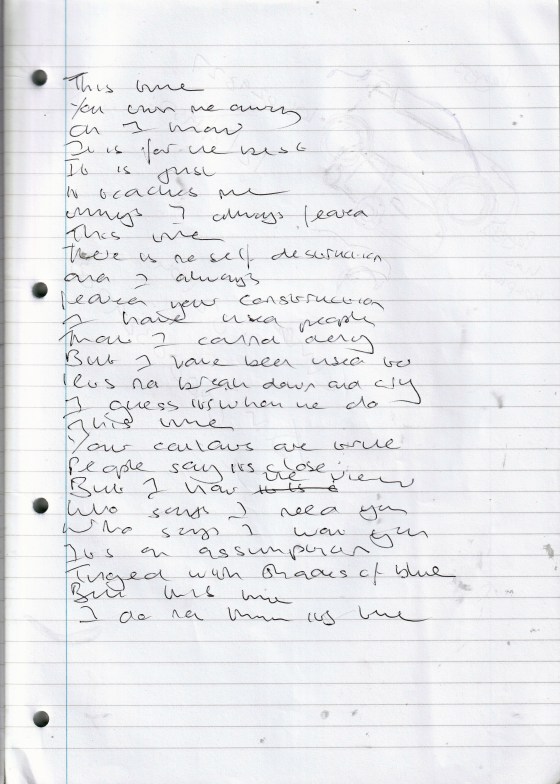 This time
You turn me away
and I know
It is for the best
It is just
It teaches me
things I always feared
This time
There is no self destruction
and I always
feared your construction
I have used people
That I cannot deny
But I have been used too
lets not break down and cry
I guess its what we do
This time
Your colours are true
People say its close
But I have the view
Who says I need you
Who says I want you
Its an assumption
Tinged with shades of blue
But this time
I do not think its true